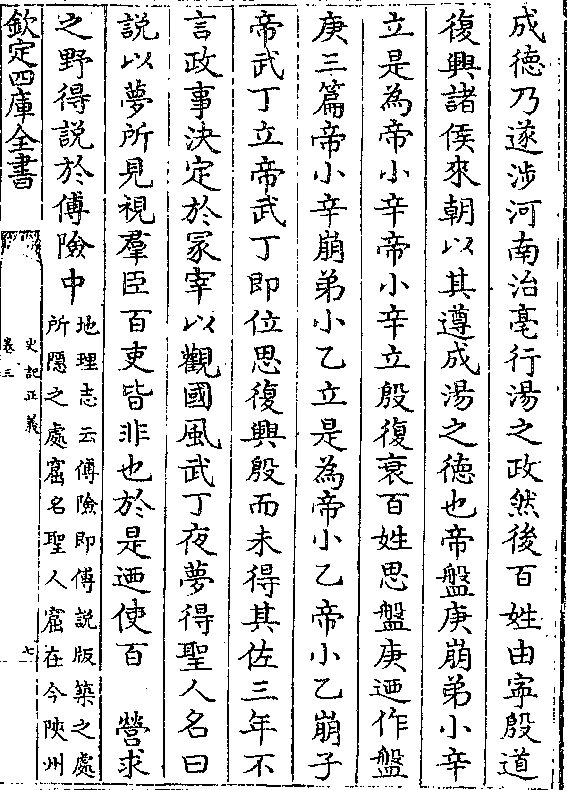 成德乃遂涉河南治亳行湯之政然後百姓由寧殷道
復興諸侯來朝以其遵成湯之德也帝盤庚崩弟小辛
立是為帝小辛帝小辛立殷復衰百姓思盤庚廼作盤
庚三篇帝小辛崩弟小乙立是為帝小乙帝小乙崩子
帝武丁立帝武丁即位思復興殷而未得其佐三年不
言政事決定於冢宰以觀國風武丁夜夢得聖人名曰
説以夢所見視羣臣百吏皆非也於是廼使百 營求
之野得説於傅險中
地理志云傅險即傅説版築之處
所隠之處窟名聖人窟在今陜州
欽定四庫全書
史記正義
卷三
七